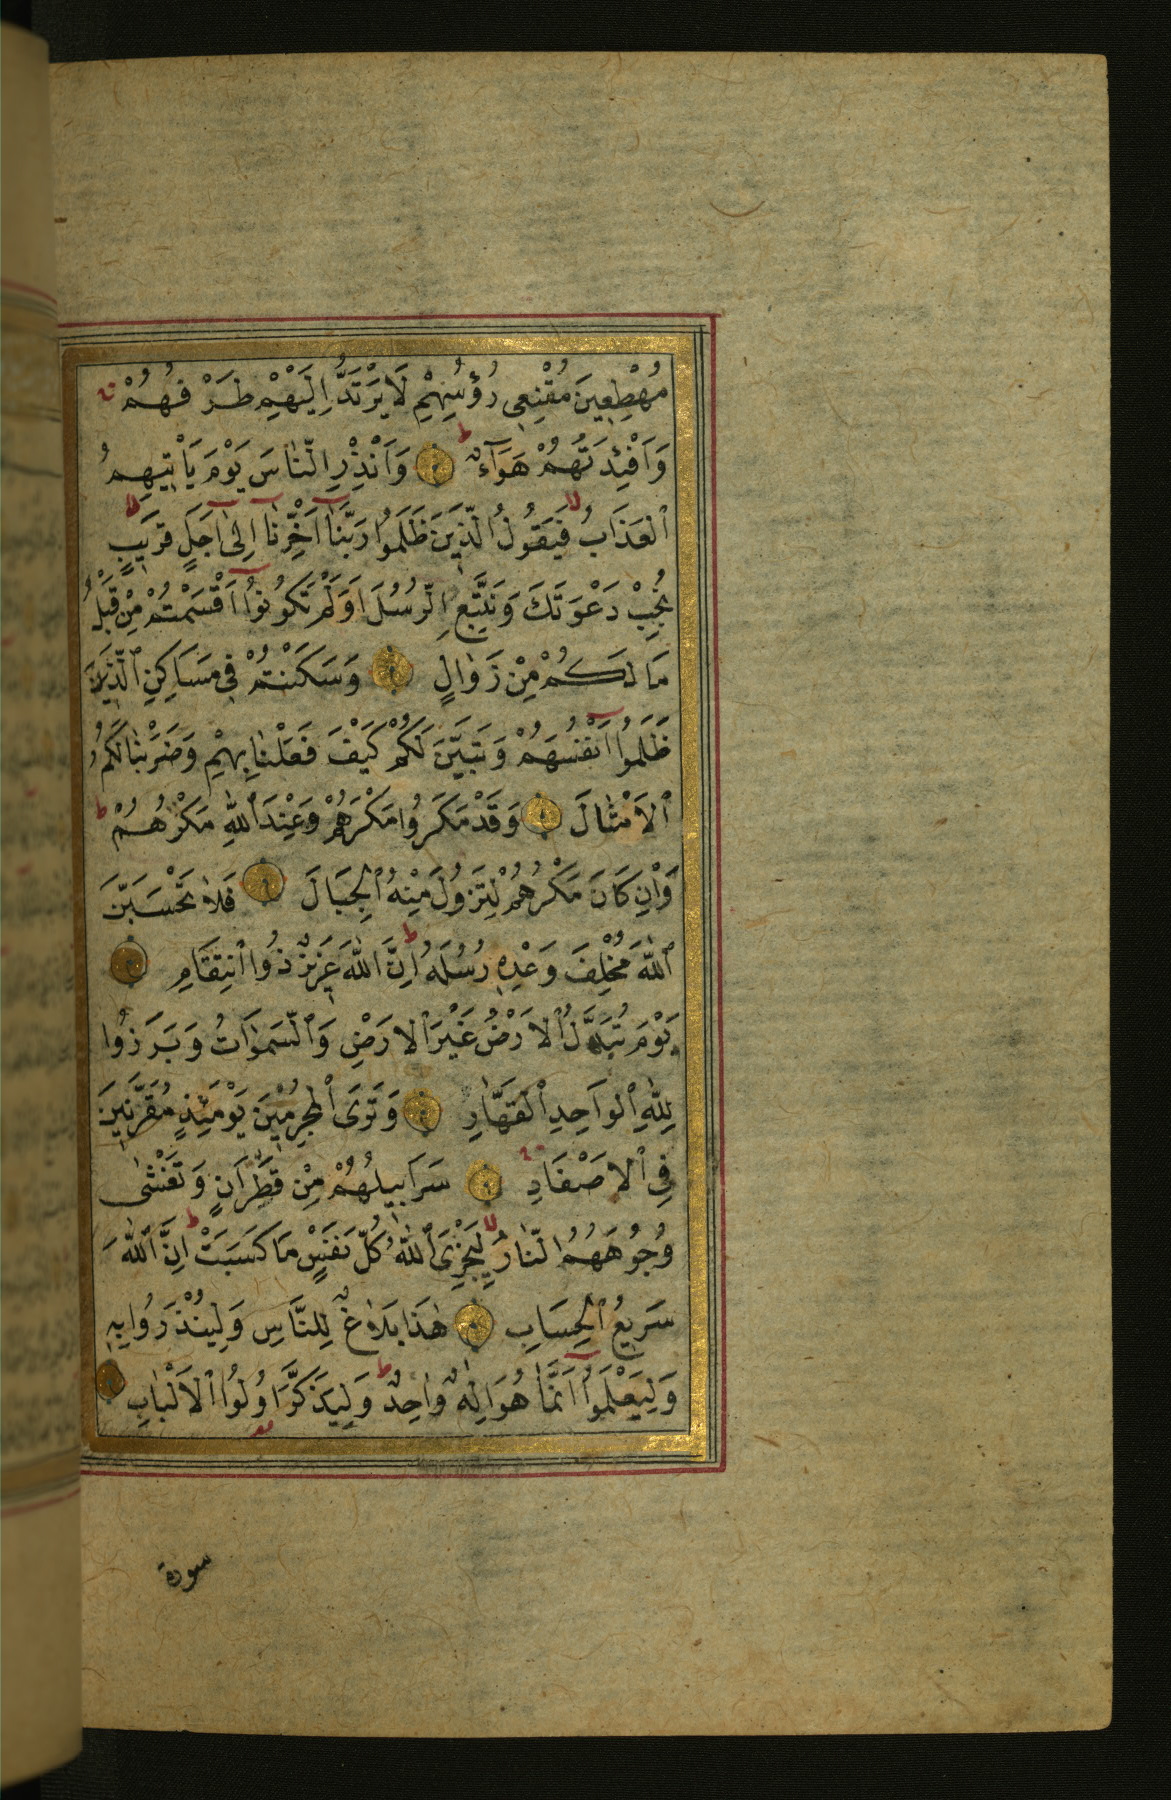 مُهْطِعِينَ مُقْنِعِى رُؤُسِهِمْ لَا يَرْتَدُّ اِلَيْهِمْ طَرْفُهُمْ
وَاَفْئِدَتُهُمْ هَوَآءٌ وَاَنْذِرِ النَّاسَ يَوْمَ يَاْتِيهِمُ
الْعَذَابُ فَيَقُولُ الَّذِينَ ظَلَمُوا رَبَّنَا اَخِّرْنَا اِلٰى اَجَلٍ قَرِيبٍ
نُجِبْ دَعْوَتَكَ وَنَتَّبِعِ الرُّسُلَ اَوَلَمْ تَكُونُوا اَقْسَمْتُمْ مِنْ قَبْلُ
مَالَكُمْ مِنْ زَوَالٍ وَسَكَنْتُمْ فِى مَسَاكِنِ الَّذِينَ
ظَلَمُوا اَنْفُسَهُمْ وَتَبَيَّنَ لَكُمْ كَيْفَ فَعَلْنَا بِهِمْ وَضَرَبْنَا لَكُمُ
الْاَمْثَالَ وَقَدْ مَكَرُوا مَكْرَهُمْ وَعِنْدَ اللّٰهِ مَكْرُهُمْ
وَاِنْ كَانَ مَكْرُهُمْ لِتَزُولَ مِنْهُ الْجِبَالُ فَلَا تَحْسَبَنَّ
اللّٰهَ مُخْلِفَ وَعْدِهِ رُسُلَهُ اِنَّ اللّٰهَ عَزِيزٌ ذُوا انْتِقَامٍ
يَوْمَ تُبَدَّلُ الْاَرْضُ غَيْرَ الْاَرْضِ وَالسَّمٰوَاتُ وَبَرَزُوا
لِلّٰهِ الْوَاحِدِ الْقَهَّارِ وَتَرَى الْمُجْرِمِينَ يَوْمَئِذٍ مُقَرَّنِينَ
فِى الْاَصْفَادِ سَرَابِيلُهُمْ مِنْ قَطِرَانٍ وَتَغْشٰى
وُجُوهَهُمُ النَّارُ لِيَجْزِىَ اللّٰهُ كُلَّ نَفْسٍ مَا كَسَبَتْ اِنَّ اللّٰهَ
سَرِيعُ الْحِسَابِ هٰذَا بَلَاغٌ لِلنَّاسِ وَلِيُنْذَرُوا بِهِ
وَلِيَعْلَمُوا اَنَّمَا هُوَ اِلٰهٌ وَاحِدٌ وَلِيَذَّكَّرَ اُولُوا الْاَلْبَابِ
سورة